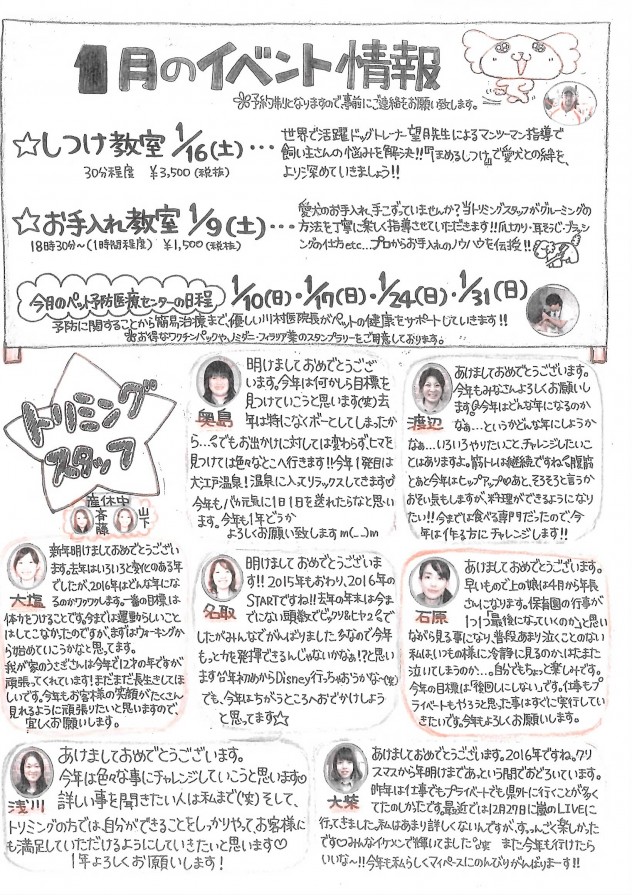 1月のイベント情報
※予約制となりますので、事前にご連絡をお願い致します。
☆しつけ教室 1/16(土)…
30分程度 ¥3,500(税抜)
世界で活躍ドッグトレーナー望月先生によるマンツーマン指導で
飼い主さんの悩みを解決!!『ほめるしつけ』で愛犬との絆を、
より深めていきましょう!!
☆お手入れ教室 1/9(土)…
18時30分~(1時間程度) ¥1,500(税抜)
愛犬のお手入れ、手こずっていませんか?当トリミングスタッフがグルーミングの
方法を丁寧に楽しく指導させていただきます!!爪切り・耳そうじ・ブラッシ
ングの仕方etc…プロからお手入れのノウハウを伝授!!
今月のペット予防医療センターの日程
1/10(日)・1/17(日)・1/24(日)・1/31(日)
予防に関することから簡易治療まで、優しい川村医院長がペットの健康をサポートしていきます!!
※お得なワクチンパックや、ノミ・ダニ・フィラリア薬のスタンプラリーをご用意しております。
トリミング
スタッフ
産休中
斉藤
山下
奥島
明けましておめでとうござ
います。今年は何かしら目標を
見つけていこうと思います(笑)去
年は特になくボーとしてしまったか
ら…でもお出かけに対しては変わらず、ヒマを
見つけては色々なとこへ行きます!!今年1発目は
大江戸温泉!温泉に入ってリラックスしてきます!
今年もバカ元気に1日1日を送れたらなと思いま
す。今年も1年どうか
よろしくお願い致しますm(_ _)m
渡辺
あけましておめでとうございます。
今年もみなさんよろしくお願いし
ます。今年はどんな年になるのか
なぁ…というかどんな年にしようか
なぁ…いろいろやりたいこと、チャレンジしたいこ
とはありますよ。筋トレは継続ですね。腹筋
とあと今年はヒップアップ♡あと、そろそろと言うか
おそい気もしますが、お料理ができるようになり
たい!!今までは食べる専門だったので、今
年は作る方にチャレンジします!!
大塩
新年明けましておめでとうござい
ます。去年はいろいろと変化のある3年
でしたが、2016年はどんな年にな
るのかワクワクします。一番の目標は
体力をつけることです。今までは運動らしいこと
はしてこなかったのですが、まずはウォーキングか
ら始めていこうかなと思ってます。
我が家のうさぎさんは今年で12才の年ですが
頑張ってくれています!まだまだ長生きしてほ
しいです。今年もお客様の笑顔がたくさん
見れるように頑張りたいと思いますので、
宜しくお願いします。
名取
明けましておめでとうございま
す!!2015年もおわり、2016年の
STARTですね!!去年の年末は今ま
でにない頭数でビックリ&ヒヤヒヤ
でしたがみんなでがんばりました。なので今年
もっと力を発揮できるんじゃないかなぁ!?と思い
ます。年初めからDisney行っちゃおうかな~(笑)
でも、今年はちがうところへおでかけしよう
と思ってます☆
石原
あけましておめでとうございます。
早いもので上の娘は4月から年長
さんになります。保育園の行事が
「1つ1つ最後になっていくのか」と思い
ながら見る事になり、普段あまり泣くことのない
私は、いつもの様に冷静に見るのか、はたまた
泣いてしまうのか…。自分でもちょっと楽しみです。
今年の目標は「後回しにしない」です。仕事もプ
ライベートもやろうと思った事はすぐに実行してい
きたいです。今年もよろしくお願いします。
浅川
あけましておめでとうございます。
今年は色々な事にチャレンジしていこうと思います♡
詳しい事を聞きたい人は私まで(笑)そして、
トリミングの方では、自分ができることをしっかりやって、お客様に
も満足していただけるようにしていきたいと思います♡
1年よろしくお願いします!
大柴
あけましておめでとうございます。2016年ですね。クリ
スマスから年明けまであっという間でおどろいています。
昨年は仕事でもプライベートでも県外に行くことが多く
てたのしかったです。最近では12月27日に嵐のLIVEに
行ってきました。私はあまり詳しくないんですが、すっっごく楽しかった
です♡みんなイケメンで輝いてました。笑 また今年も行けたら
いいな~!!今年も私らしくマイペースにのんびりがんばりまーす!!